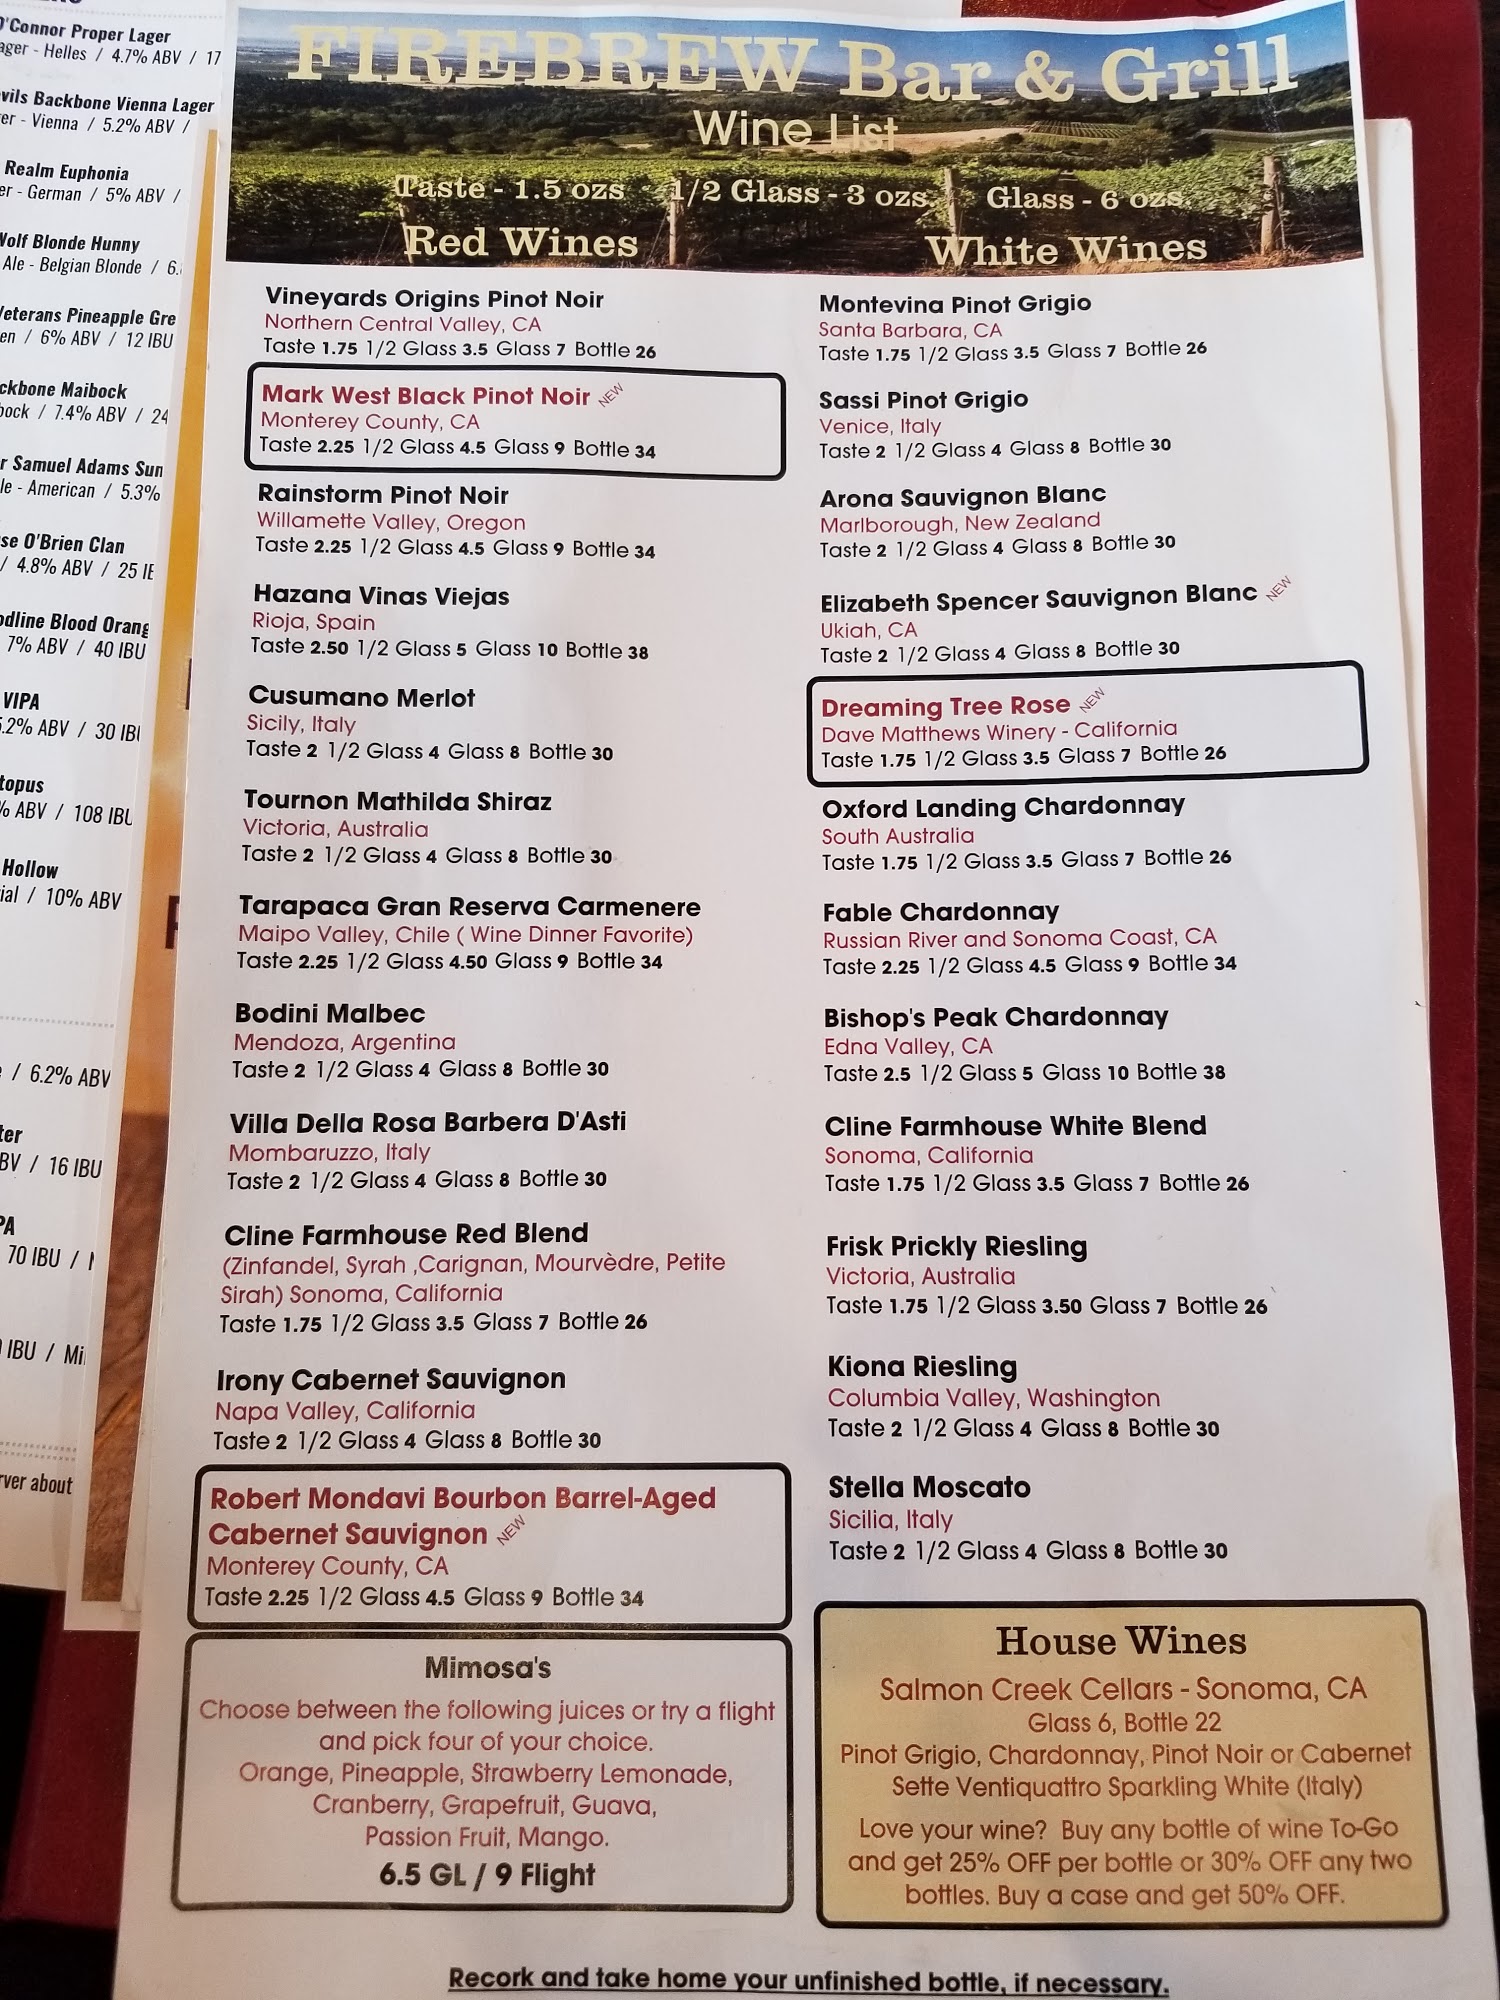 O'Connor Proper Lager
ager - Helles / 4.7% ABV / 17
vils Backbone Vienna Lager
er - Vienna / 5.2% ABV /
Realm Euphonia
er - German / 5% ABV /
Wolf Blonde Hunny
Ale - Belgian Blonde / 6.
Veterans Pineapple Gre
en / 6% ABV / 12 IBU
ckbone Maibock
bock / 7.4% ABV / 24
r Samuel Adams Sun
le - American / 5.3%
se O'Brien Clan
/ 4.8% ABV / 25 IB
odline Blood Orang
7% ABV / 40 IBU
VIPA
5.2% ABV / 30 IBU
topus
% ABV / 108 IBU
Hollow
ial / 10% ABV
/ 6.2% ABV
ter
BV / 16 IBU
PA
70 IBU /
IBU / Mi
rver about
FIREBREW Bar & Grill
Wine List
Taste - 1.5 ozs 1/2 Glass - 3 ozs. Glass - 6 ozs.
Red Wines
Vineyards Origins Pinot Noir
Northern Central Valley, CA
Taste 1.75 1/2 Glass 3.5 Glass 7 Bottle 26
Mark West Black Pinot Noir NEW
Monterey County, CA
Taste 2.25 1/2 Glass 4.5 Glass 9 Bottle 34
Rainstorm Pinot Noir
Willamette Valley, Oregon
Taste 2.25 1/2 Glass 4.5 Glass 9 Bottle 34
Hazana Vinas Viejas
Rioja, Spain
Taste 2.50 1/2 Glass 5 Glass 10 Bottle 38
Cusumano Merlot
Sicily, Italy
Taste 2 1/2 Glass 4 Glass 8 Bottle 30
Tournon Mathilda Shiraz
Victoria, Australia
Taste 2 1/2 Glass 4 Glass 8 Bottle 30
Tarapaca Gran Reserva Carmenere
Maipo Valley, Chile ( Wine Dinner Favorite)
Taste 2.25 1/2 Glass 4.50 Glass 9 Bottle 34
Bodini Malbec
Mendoza, Argentina
Taste 2 1/2 Glass 4 Glass 8 Bottle 30
Villa Della Rosa Barbera D'Asti
Mombaruzzo, Italy
Taste 2 1/2 Glass 4 Glass 8 Bottle 30
Cline Farmhouse Red Blend
(Zinfandel, Syrah ,Carignan, Mourvèdre, Petite
Sirah) Sonoma, California
Taste 1.75 1/2 Glass 3.5 Glass 7 Bottle 26
Irony Cabernet Sauvignon
Napa Valley, California
Taste 2 1/2 Glass 4 Glass 8 Bottle 30
Robert Mondavi Bourbon Barrel-Aged
Cabernet Sauvignon NEW
Monterey County, CA
Taste 2.25 1/2 Glass 4.5 Glass 9 Bottle 34
Mimosa's
Choose between the following juices or try a flight
and pick four of your choice.
Orange, Pineapple, Strawberry Lemonade,
Cranberry, Grapefruit, Guava,
Passion Fruit, Mango.
6.5 GL / 9 Flight
White Wines
Montevina Pinot Grigio
Santa Barbara, CA
Taste 1.75 1/2 Glass 3.5 Glass 7 Bottle 26
Sassi Pinot Grigio
Venice, Italy
Taste 2 1/2 Glass 4 Glass 8 Bottle 30
Arona Sauvignon Blanc
Marlborough, New Zealand
Taste 2 1/2 Glass 4 Glass 8 Bottle 30
Elizabeth Spencer Sauvignon Blanc NEW
Ukiah, CA
Taste 2 1/2 Glass 4 Glass 8 Bottle 30
Dreaming Tree Rose NEW
Dave Matthews Winery - California
Taste 1.75 1/2 Glass 3.5 Glass 7 Bottle 26
Oxford Landing Chardonnay
South Australia
Taste 1.75 1/2 Glass 3.5 Glass 7 Bottle 26
Fable Chardonnay
Russian River and Sonoma Coast, CA
Taste 2.25 1/2 Glass 4.5 Glass 9 Bottle 34
Bishop's Peak Chardonnay
Edna Valley, CA
Taste 2.5 1/2 Glass 5 Glass 10 Bottle 38
Cline Farmhouse White Blend
Sonoma, California
Taste 1.75 1/2 Glass 3.5 Glass 7 Bottle 26
Frisk Prickly Riesling
Victoria, Australia
Taste 1.75 1/2 Glass 3.50 Glass 7 Bottle 26
Kiona Riesling
Columbia Valley, Washington
Taste 2 1/2 Glass 4 Glass 8 Bottle 30
Stella Moscato
Sicilia, Italy
Taste 2 1/2 Glass 4 Glass 8 Bottle 30
House Wines
Salmon Creek Cellars - Sonoma, CA
Glass 6, Bottle 22
Pinot Grigio, Chardonnay, Pinot Noir or Cabernet
Sette Ventiquattro Sparkling White (Italy)
Love your wine? Buy any bottle of wine To-Go
and get 25% OFF per bottle or 30% OFF any two
bottles. Buy a case and get 50% OFF.
Recork and take home your unfinished bottle, if necessary.